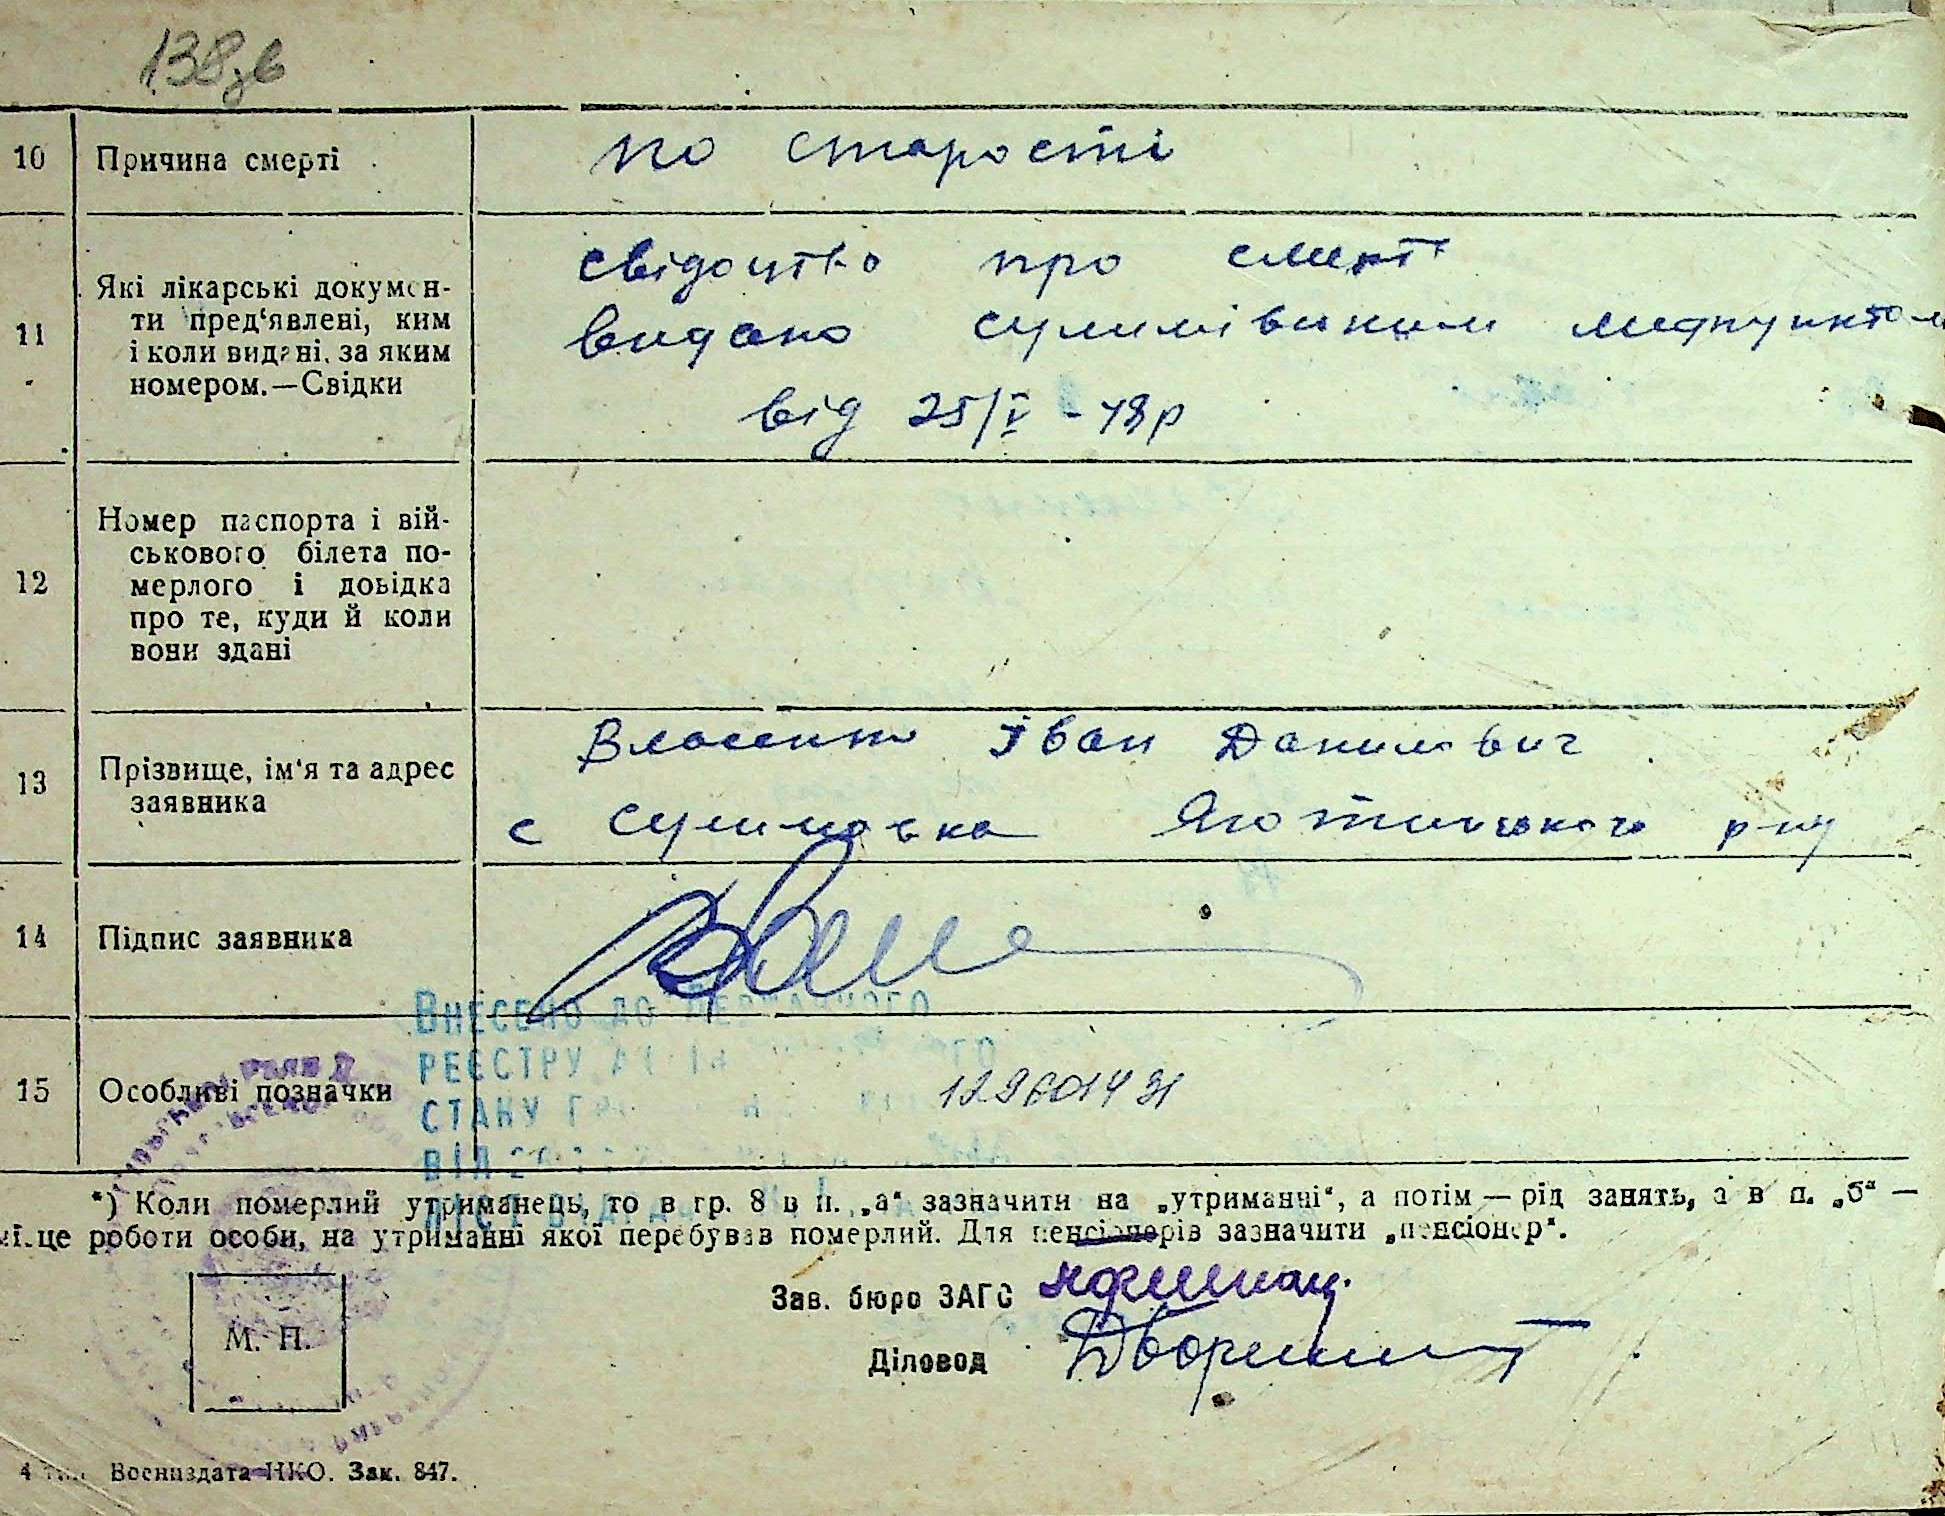 138зв
10 Причина смерті по старості
11 Які лікарські докумен-
ти пред‘явлені, ким
і коли видані, за яким
номером.—Свідки
свідоцтво про смерт
видано сулимівським медпунктом
від 25/V - 48р
12 Номер паспорта і вій-
ськового білета по-
мерлого і довідка
про те, куди й коли
вони здані
13 Прізвище, ім‘я та адрес
заявника
Власенко Іван Данилович
с Сулимовка Яготинського р-ну
14 Підпис заявника
Внесено до Державного
реєстру
стану
від
15 Особливі позначки
*) Коли померлий утриманець, то в гр. 8 в п. „а“ зазначити на „утриманні“, а потім — рід занять, а в п. „б“ —
місце роботи особи, на утриманні якої перебував померлий. Для пенсіонерів зазначити „пенсіонер“.
Зав. бюро ЗАГС
М. П.
Діловод
4 тип. Воениздата НКО. Зак. 847.